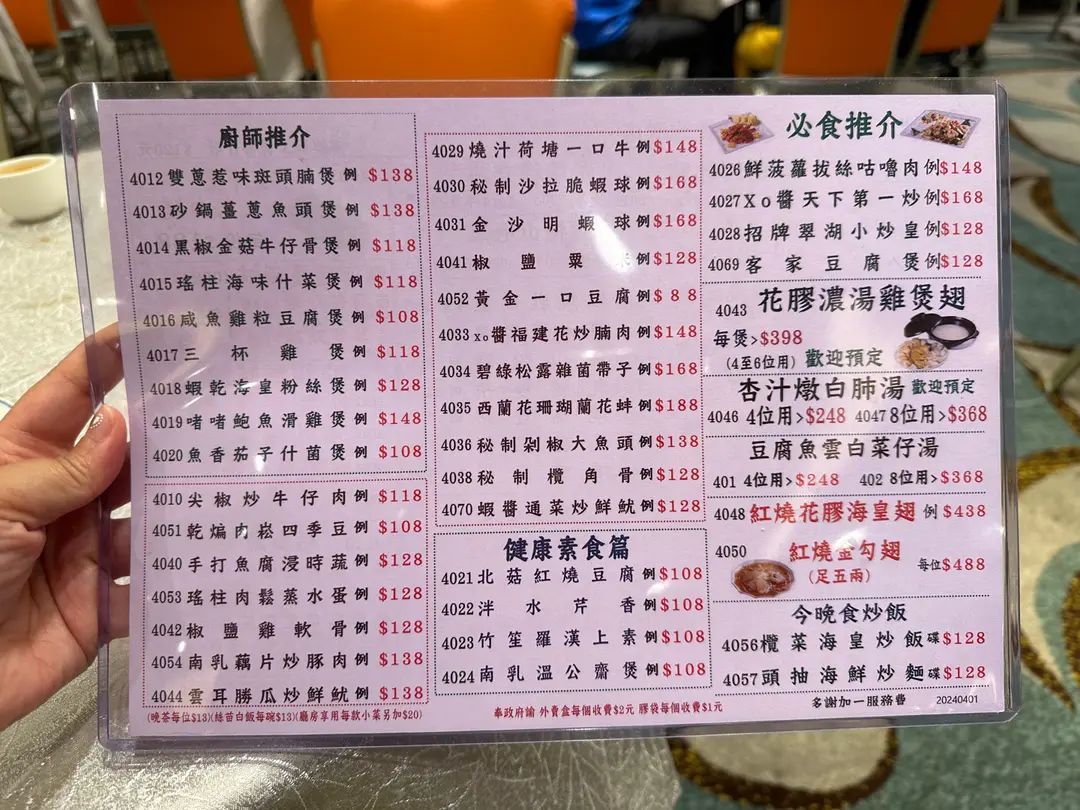 廚師推介
4012 雙蔥惹味斑頭腩煲 例 $138
4013 砂鍋薑蔥魚頭煲 例 $138
4014 黑椒金菇牛仔骨煲 例 $118
4015 瑤柱海味什菜煲 例 $118
4016 咸魚雞粒豆腐煲 例 $108
4017 三杯雞煲 例 $118
4018 蝦乾海皇粉絲煲 例 $128
4019 啫啫鮑魚滑雞煲 例 $148
4020 魚香茄子什菌煲 例 $108
4010 尖椒炒牛仔肉 例 $118
4051 乾煸肉崧四季豆 例 $108
4040 手打魚腐浸時蔬 例 $128
4053 瑤柱肉鬆蒸水蛋 例 $128
4042 椒鹽雞軟骨 例 $128
4054 南乳藕片炒豚肉 例 $138
4044 雲耳勝瓜炒鮮魷 例 $138
(晚茶每位$13)(絲苗白飯每碗$13)(廳房享用每款小菜另加$20)
4029 燒汁荷塘一口牛 例 $148
4030 秘制沙拉脆蝦球 例 $168
4031 金沙明蝦球 例 $168
4041 椒鹽粟米 例 $128
4052 黃金一口豆腐 例 $88
4033 xo醬福建花炒腩肉 例 $148
4034 碧綠松露雜菌帶子 例 $168
4035 西蘭花珊瑚蘭花蚌 例 $188
4036 秘制剁椒大魚頭 例 $138
4038 秘制欖角骨 例 $128
4070 蝦醬通菜炒鮮魷 例 $128
健康素食篇
4021 北菇紅燒豆腐 例 $108
4022 泮水芹香 例 $108
4023 竹笙羅漢上素 例 $108
4024 南乳溫公齋煲 例 $108
奉政府諭 外賣盒每個收費$2元 膠袋每個收費$1元
必食推介
4026 鮮菠蘿拔絲咕嚕肉 例 $148
4027 Xo醬天下第一炒 例 $168
4028 招牌翠湖小炒皇 例 $128
4069 客家豆腐煲 例 $128
4043 花膠濃湯雞煲翅
每煲>$398
(4至6位用) 歡迎預定
杏汁燉白肺湯 歡迎預定
4046 4位用>$248 4047 8位用>$368
豆腐魚雲白菜仔湯
401 4位用>$248 402 8位用>$368
4048 紅燒花膠海皇翅 例 $438
4050 紅燒金勾翅
(足五兩) 每位$488
今晚食炒飯
4056 欖菜海皇炒飯 碟 $128
4057 頭抽海鮮炒麵 碟 $128
多謝加一服務費 20240401